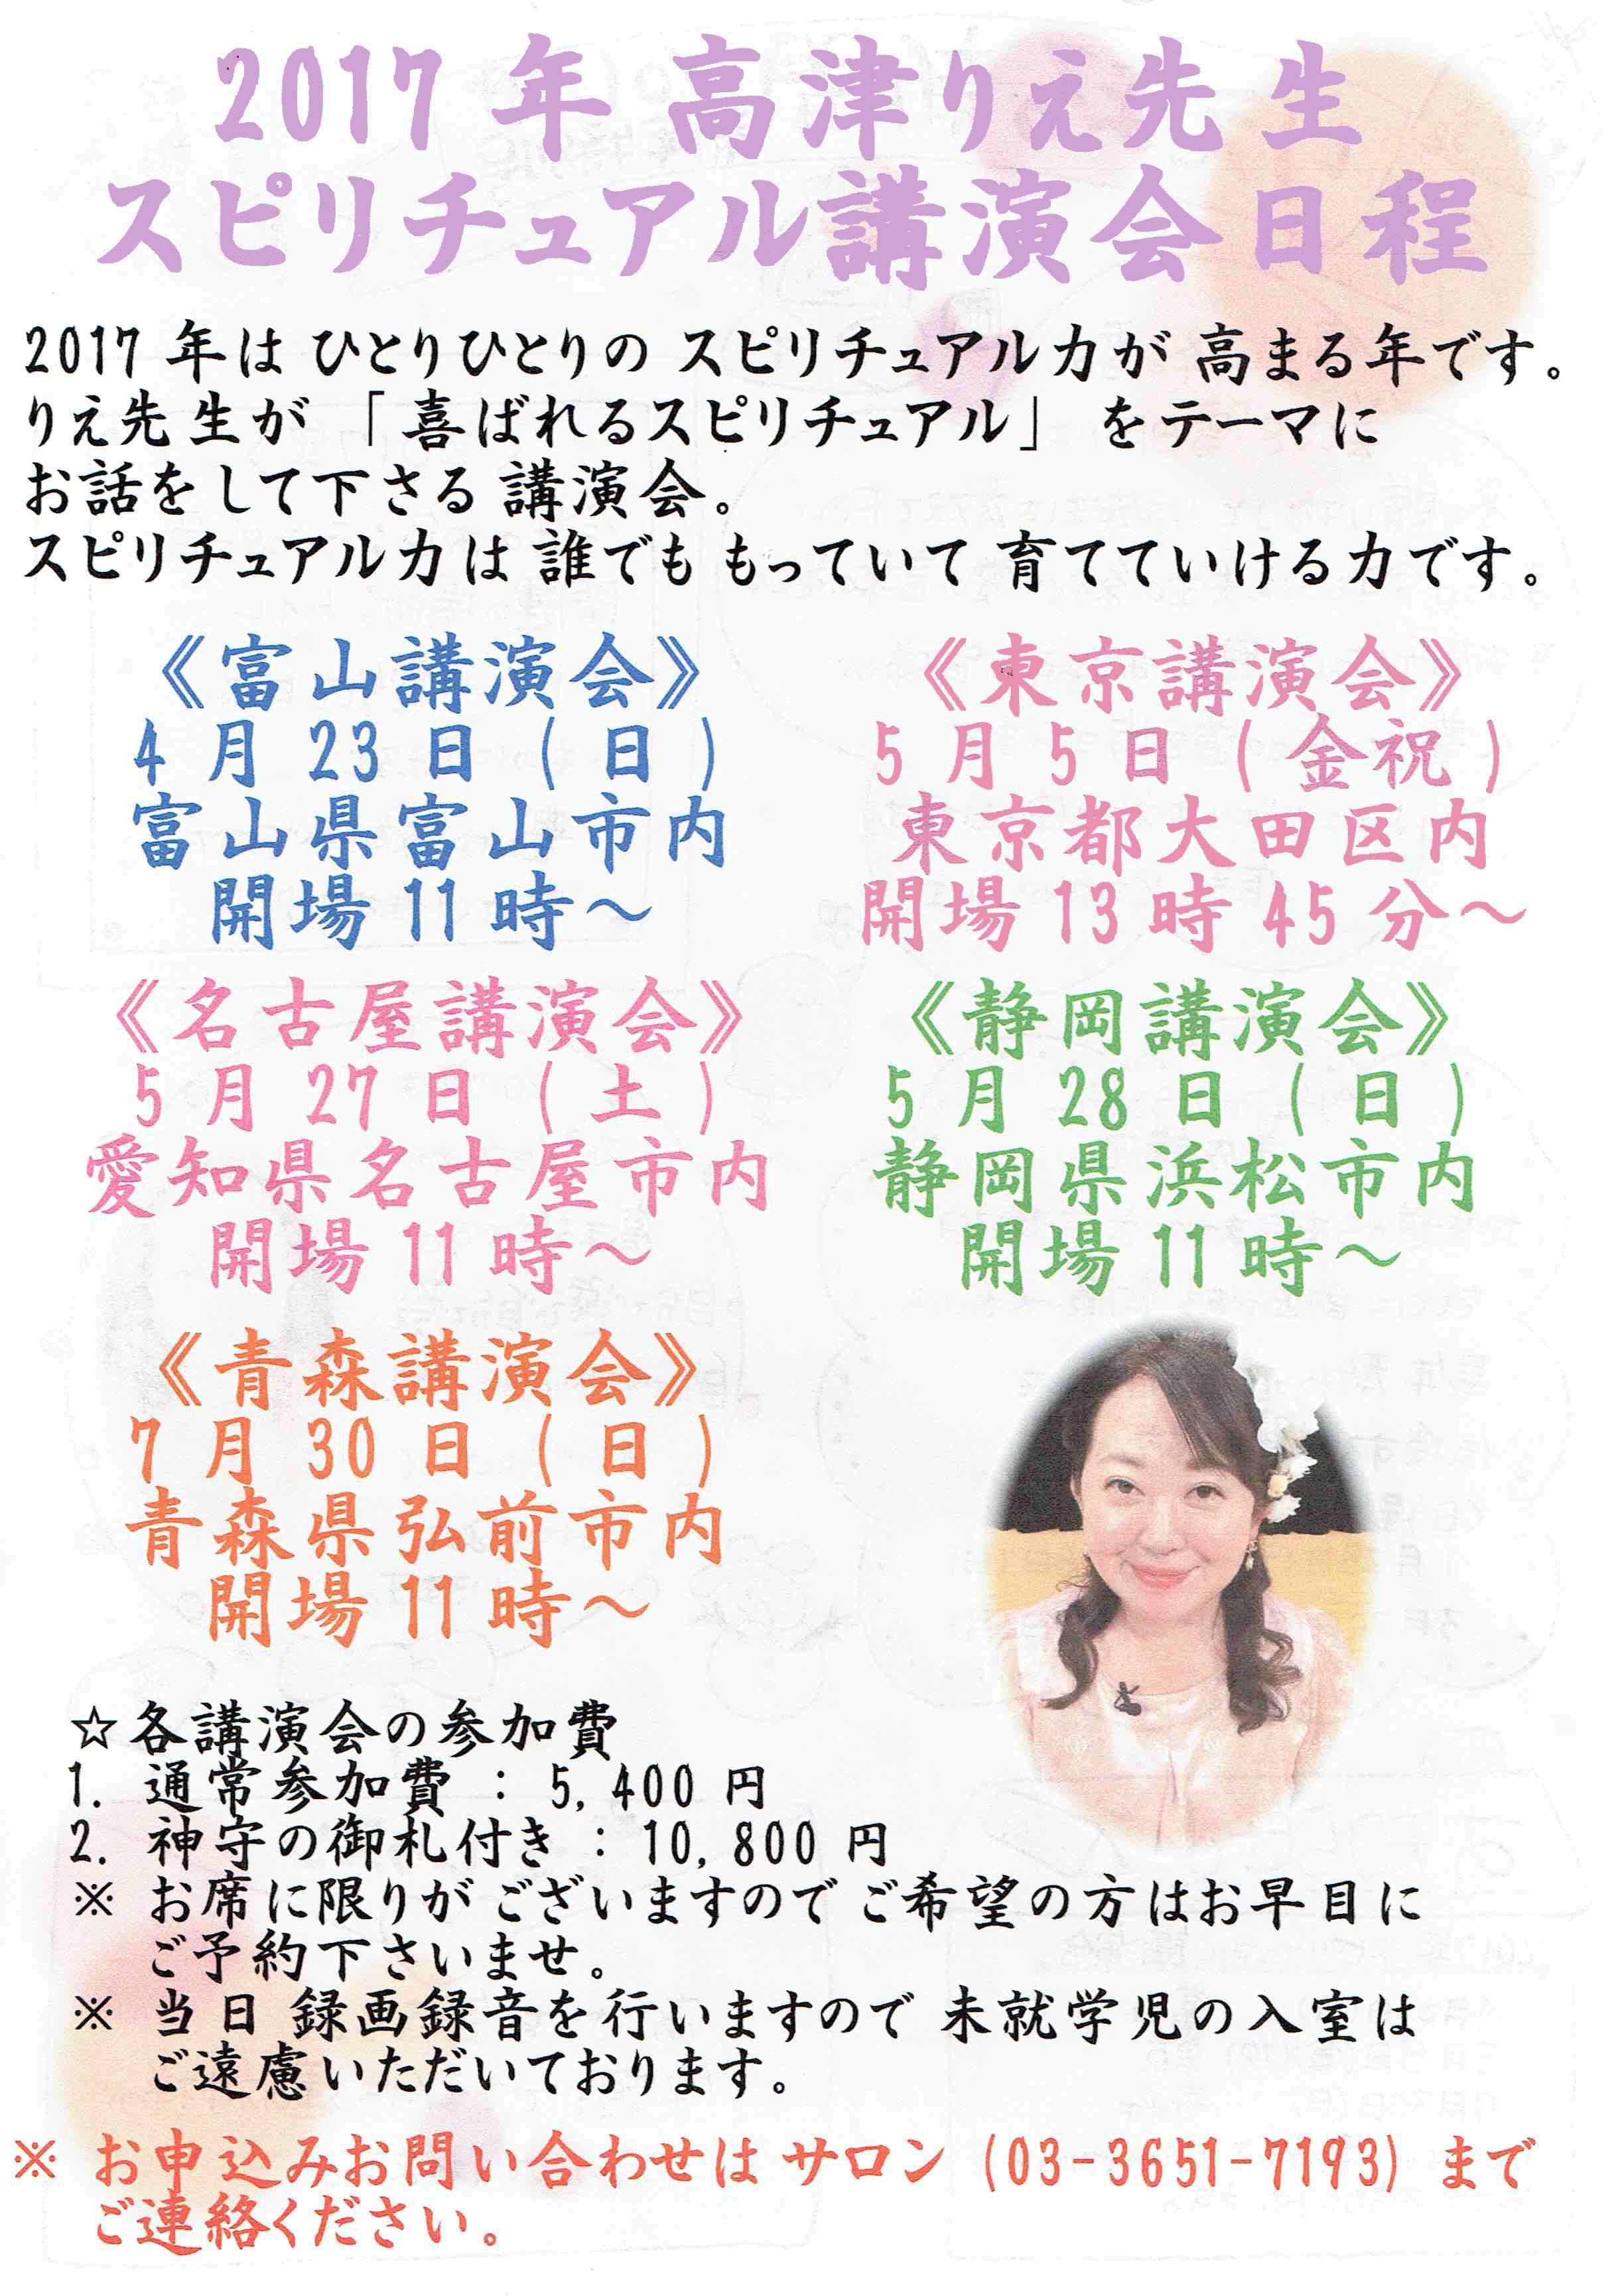 2017年 高津りえ先生
スピリチュアル講演会日程
2017年は ひとりひとりの スピリチュアル力が 高まる年です。
りえ先生が 「喜ばれるスピリチュアル」 をテーマに
お話をして下さる 講演会。
スピリチュアル力は 誰でも もっていて 育てていける力です。
《富山講演会》
4月23日(日)
富山県富山市内
開場11時～
《東京講演会》
5月5日(金祝)
東京都大田区内
開場13時45分～
《名古屋講演会》
5月27日(土)
愛知県名古屋市内
開場11時～
《静岡講演会》
5月28日(日)
静岡県浜松市内
開場11時～
《青森講演会》
7月30日(日)
青森県弘前市内
開場11時～
☆各講演会の参加費
1. 通常参加費 : 5,400円
2. 神守の御札付き : 10,800円
※ お席に限りが ございますので ご希望の方はお早目に
ご予約下さいませ。
※ 当日 録画録音を 行いますので 未就学児の入室は
ご遠慮いただいております。
※ お申込みお問い合わせは サロン (03-3651-7193) まで
ご連絡ください。